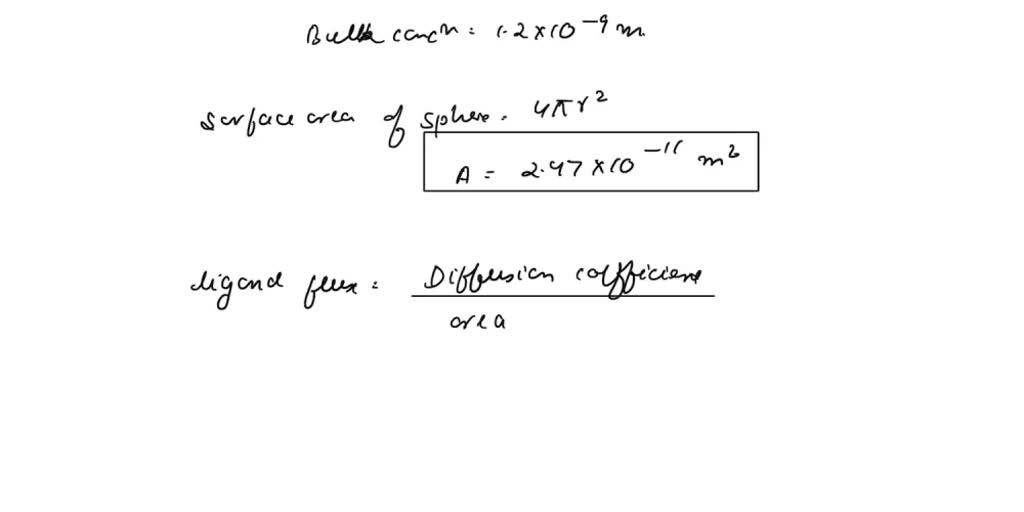 Bulk concn = 1.2×10⁻⁹ m.
surface area of sphere = 4πr²
A = 2.47×10⁻¹¹ m²
ligand flux = Diffusion coefficient
area